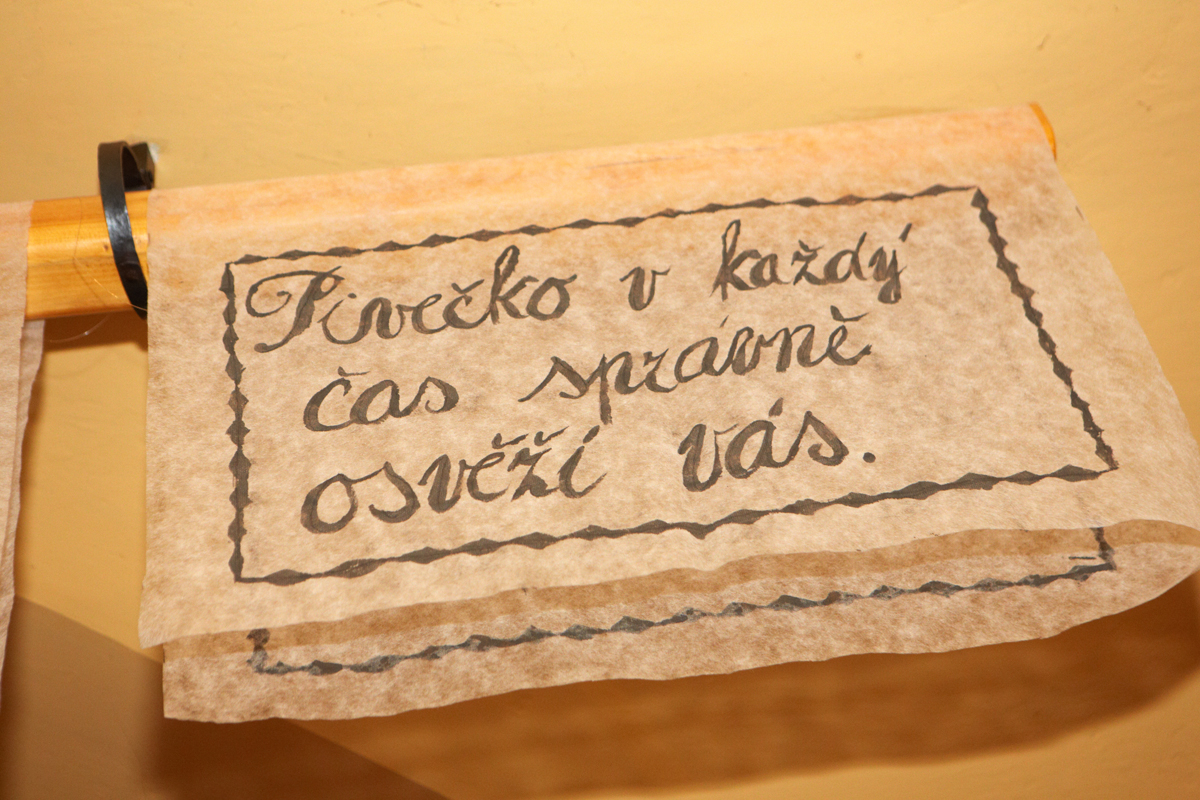 Pivečko v každý
čas správně
osvěží vás.